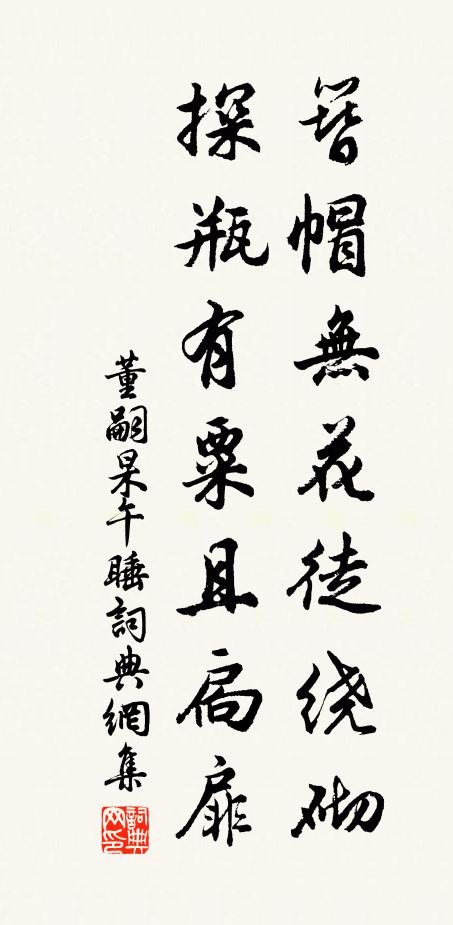 簪帽無花徒绕砌
探瓶有粟且扃扉
董嗣杲午睡詞典網集
詞典網印